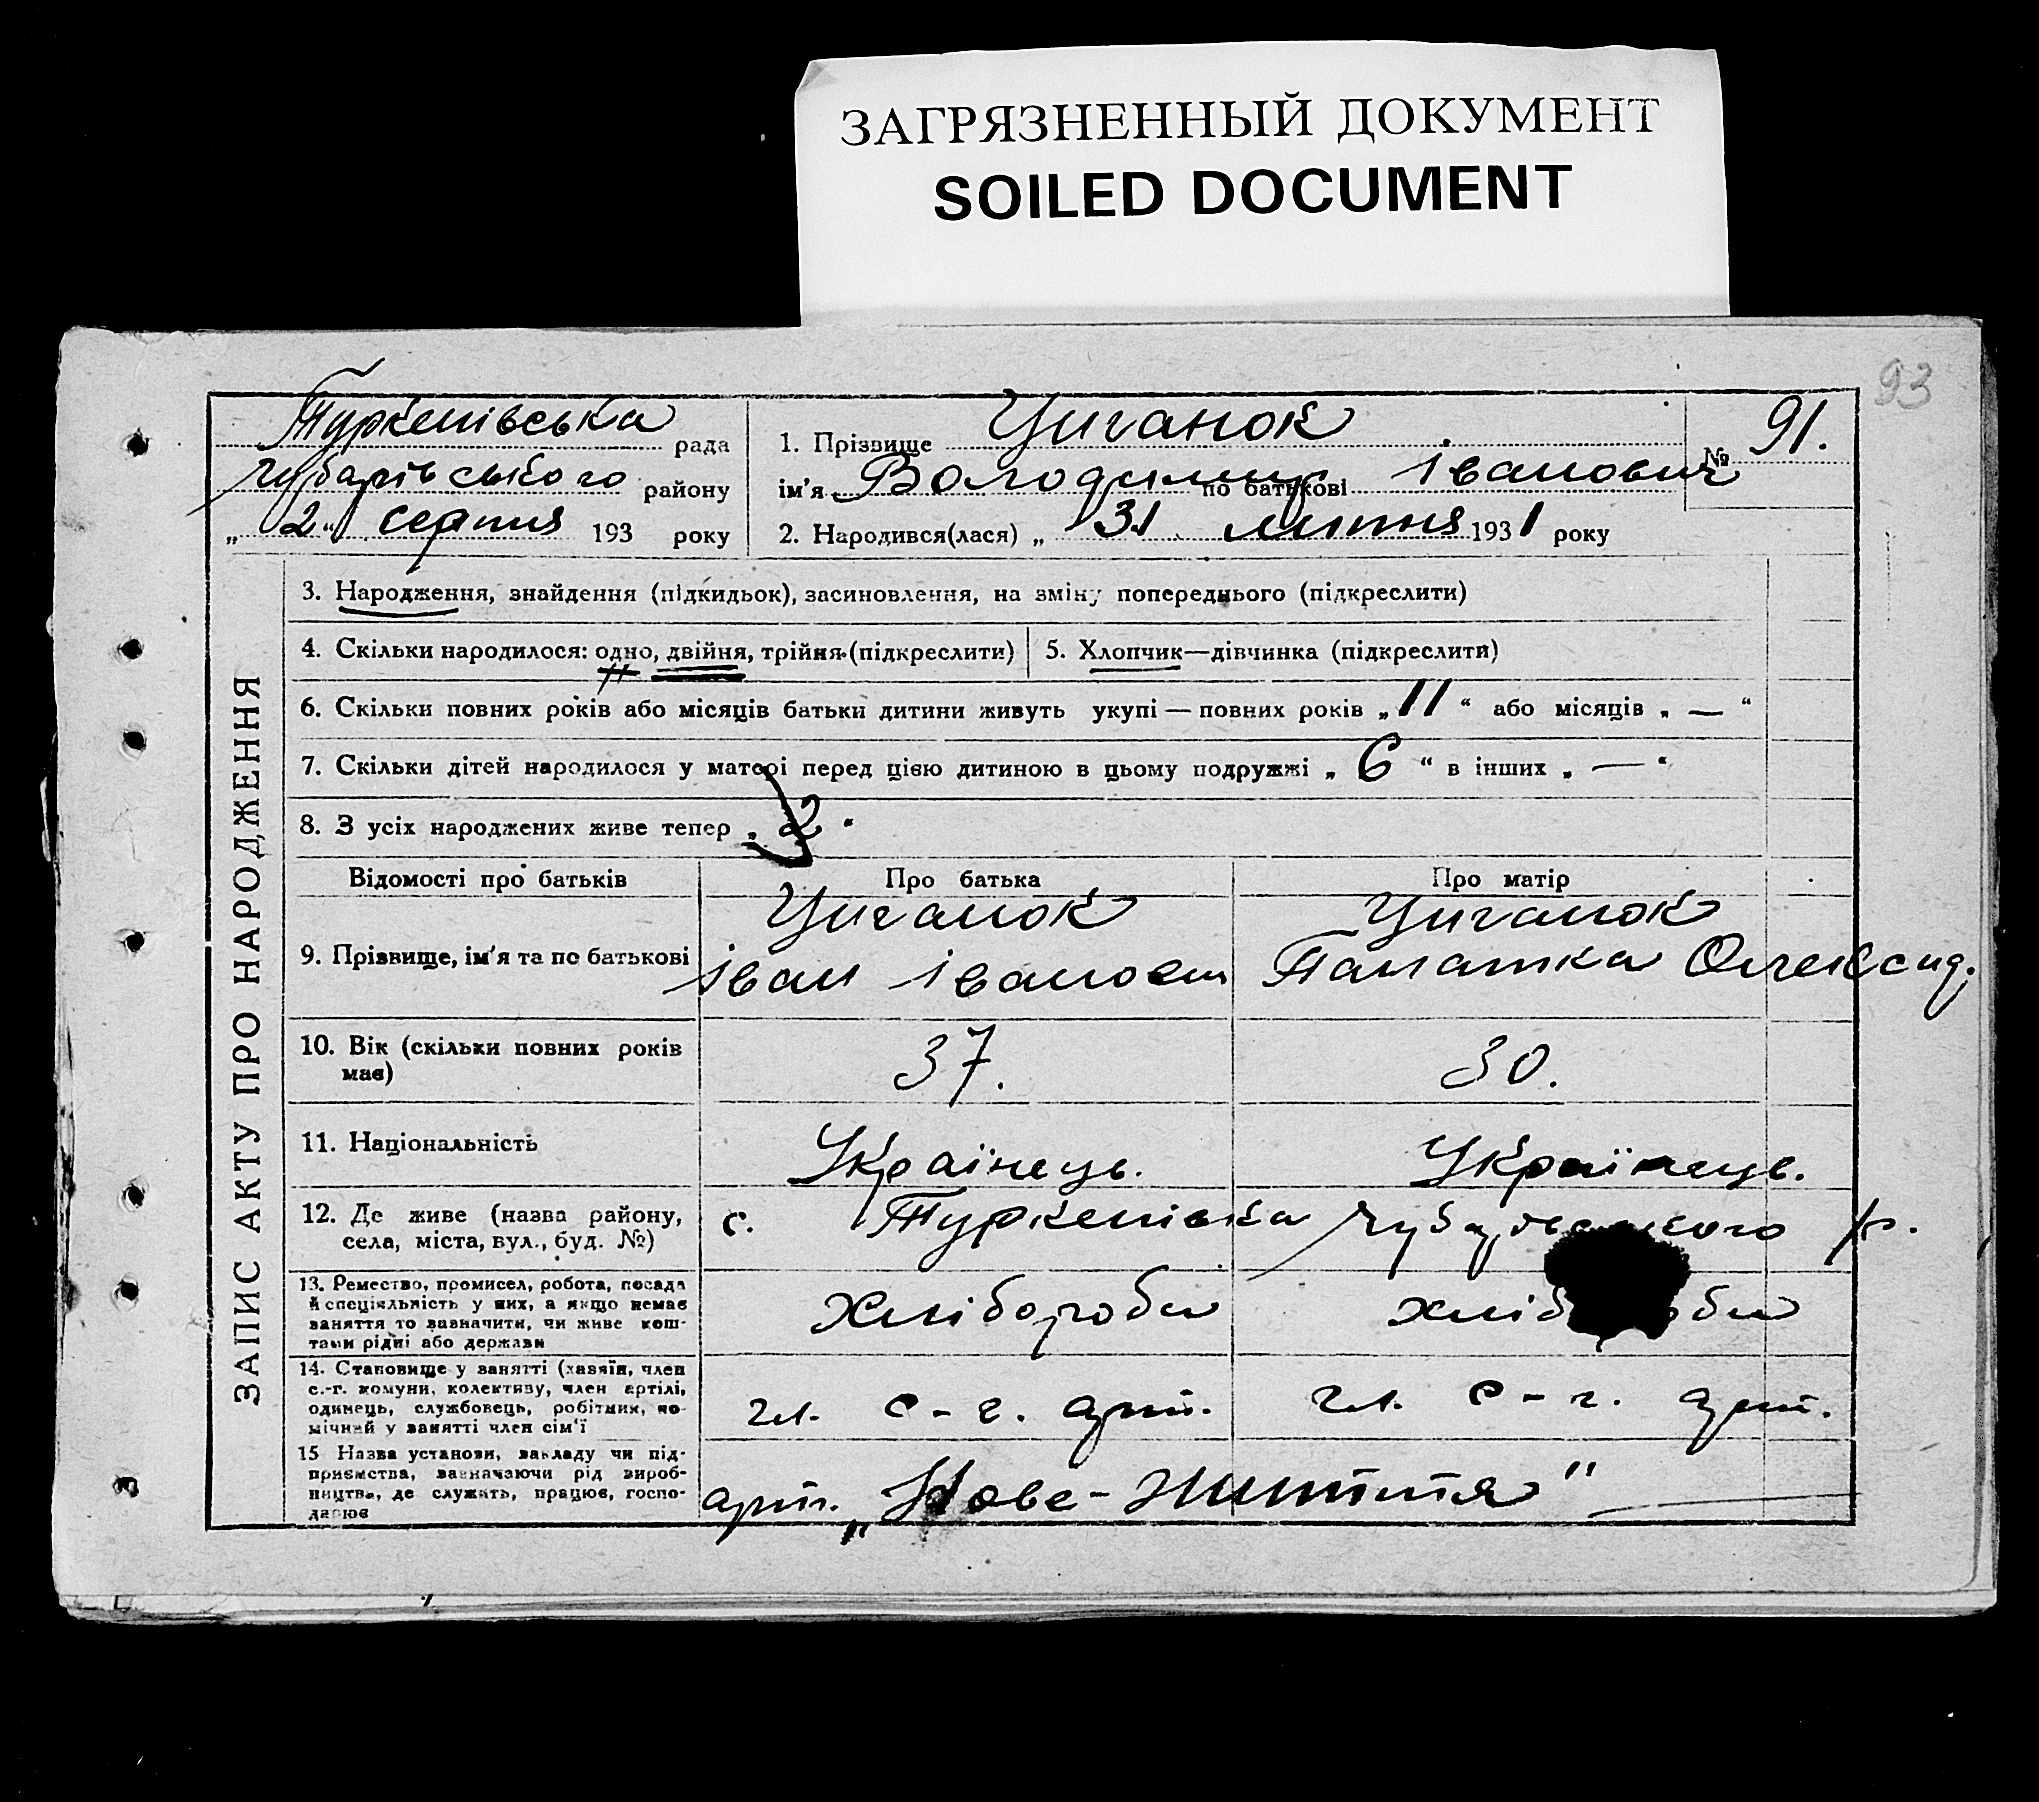 ЗАГРЯЗНЕННЫЙ ДОКУМЕНТ
SOILED DOCUMENT
93
Туркенівська рада
Чубарівського району
„ 2 " серпня 193 року
1. Прізвище Циганок
№ 91.
ім'я Володимир по батькові Іванович
2. Народився(лася) „ 31 липня 1931 року
ЗАПИС АКТУ ПРО НАРОДЖЕННЯ
3. Народження, знайдення (підкидьок), засиновлення, на зміну попереднього (підкреслити)
4. Скільки народилося: одно, двійня, трійня (підкреслити)
5. Хлопчик—дівчинка (підкреслити)
6. Скільки повних років або місяців батьки дитини живуть укупі — повних років „ 11 " або місяців „ — "
7. Скільки дітей народилося у матері перед цією дитиною в цьому подружжі „ 6 " в інших „ — "
8. З усіх народжених живе тепер „ 2 "
Відомості про батьків
Про батька
Про матір
9. Прізвище, ім'я та по батькові
Циганок
Іван Іванович
Циганок
Олександ.
10. Вік (скільки повних років
має)
37.
30.
11. Національність
Українець.
Українець.
12. Де живе (назва району,
села, міста, вул., буд. №)
с. Туркенівка Чубарівського р.
13. Ремество, промисел, робота, посада
й спеціяльність у них, а якщо немає
заняття то зазначити, чи живе кош-
тами рідні або держави
Хлібороби
хлібороби
14. Становище у занятті (хазяїн, член
с.-г. комуни, колективу, член артілі,
одинець, службовець, робітник, по-
мічний у занятті член сім'ї
чл. с-г. арт.
чл. с-г. арт.
15 Назва установи, закладу чи під-
приємства, зазначаючи рід вироб-
ництва, де служить, працює, госпо-
дарює
арт. „Нове-Життя"